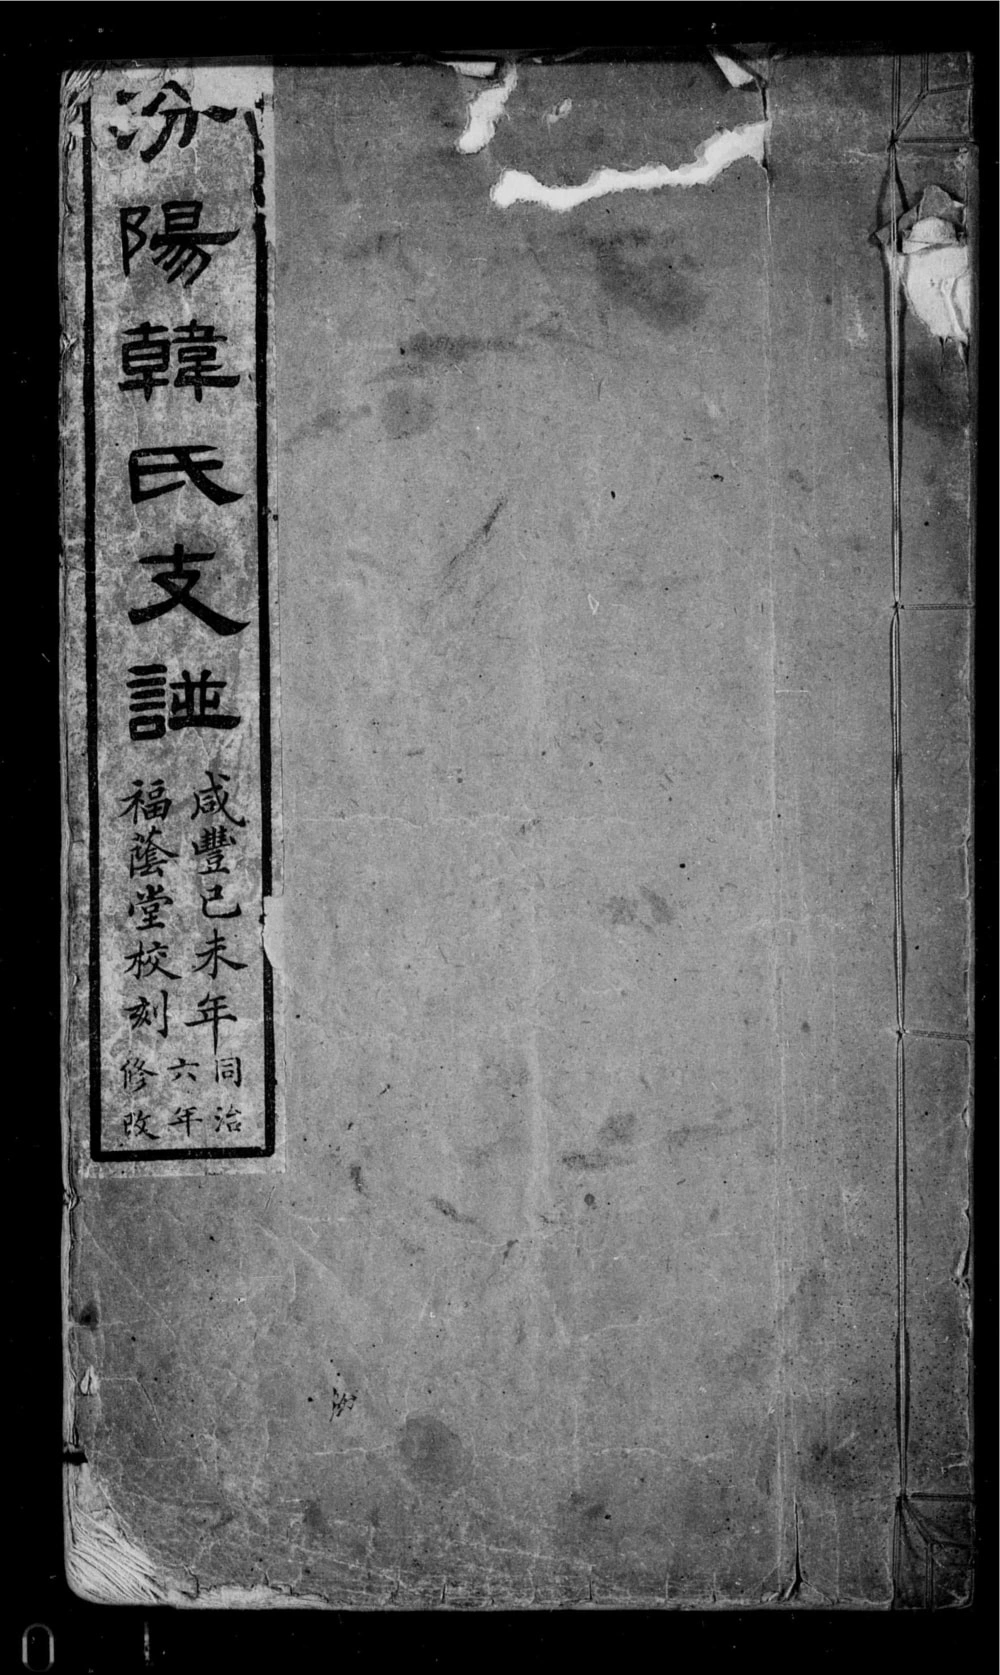 汾陽韓氏支譜
咸豐己未年
福蔭堂校刻
同治
六年
修改